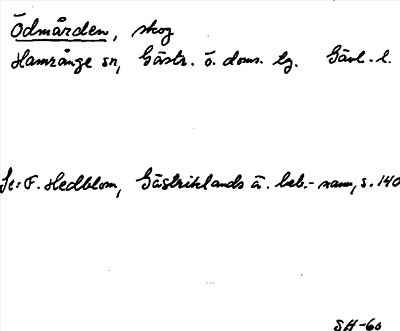 Ödmården, skog
Hamrånge sn, Gästr. ö. doms. tg. Gävl. l.
Se: F. Hedblom, Gästriklands ä. beb.-namn, s. 140
SH-60